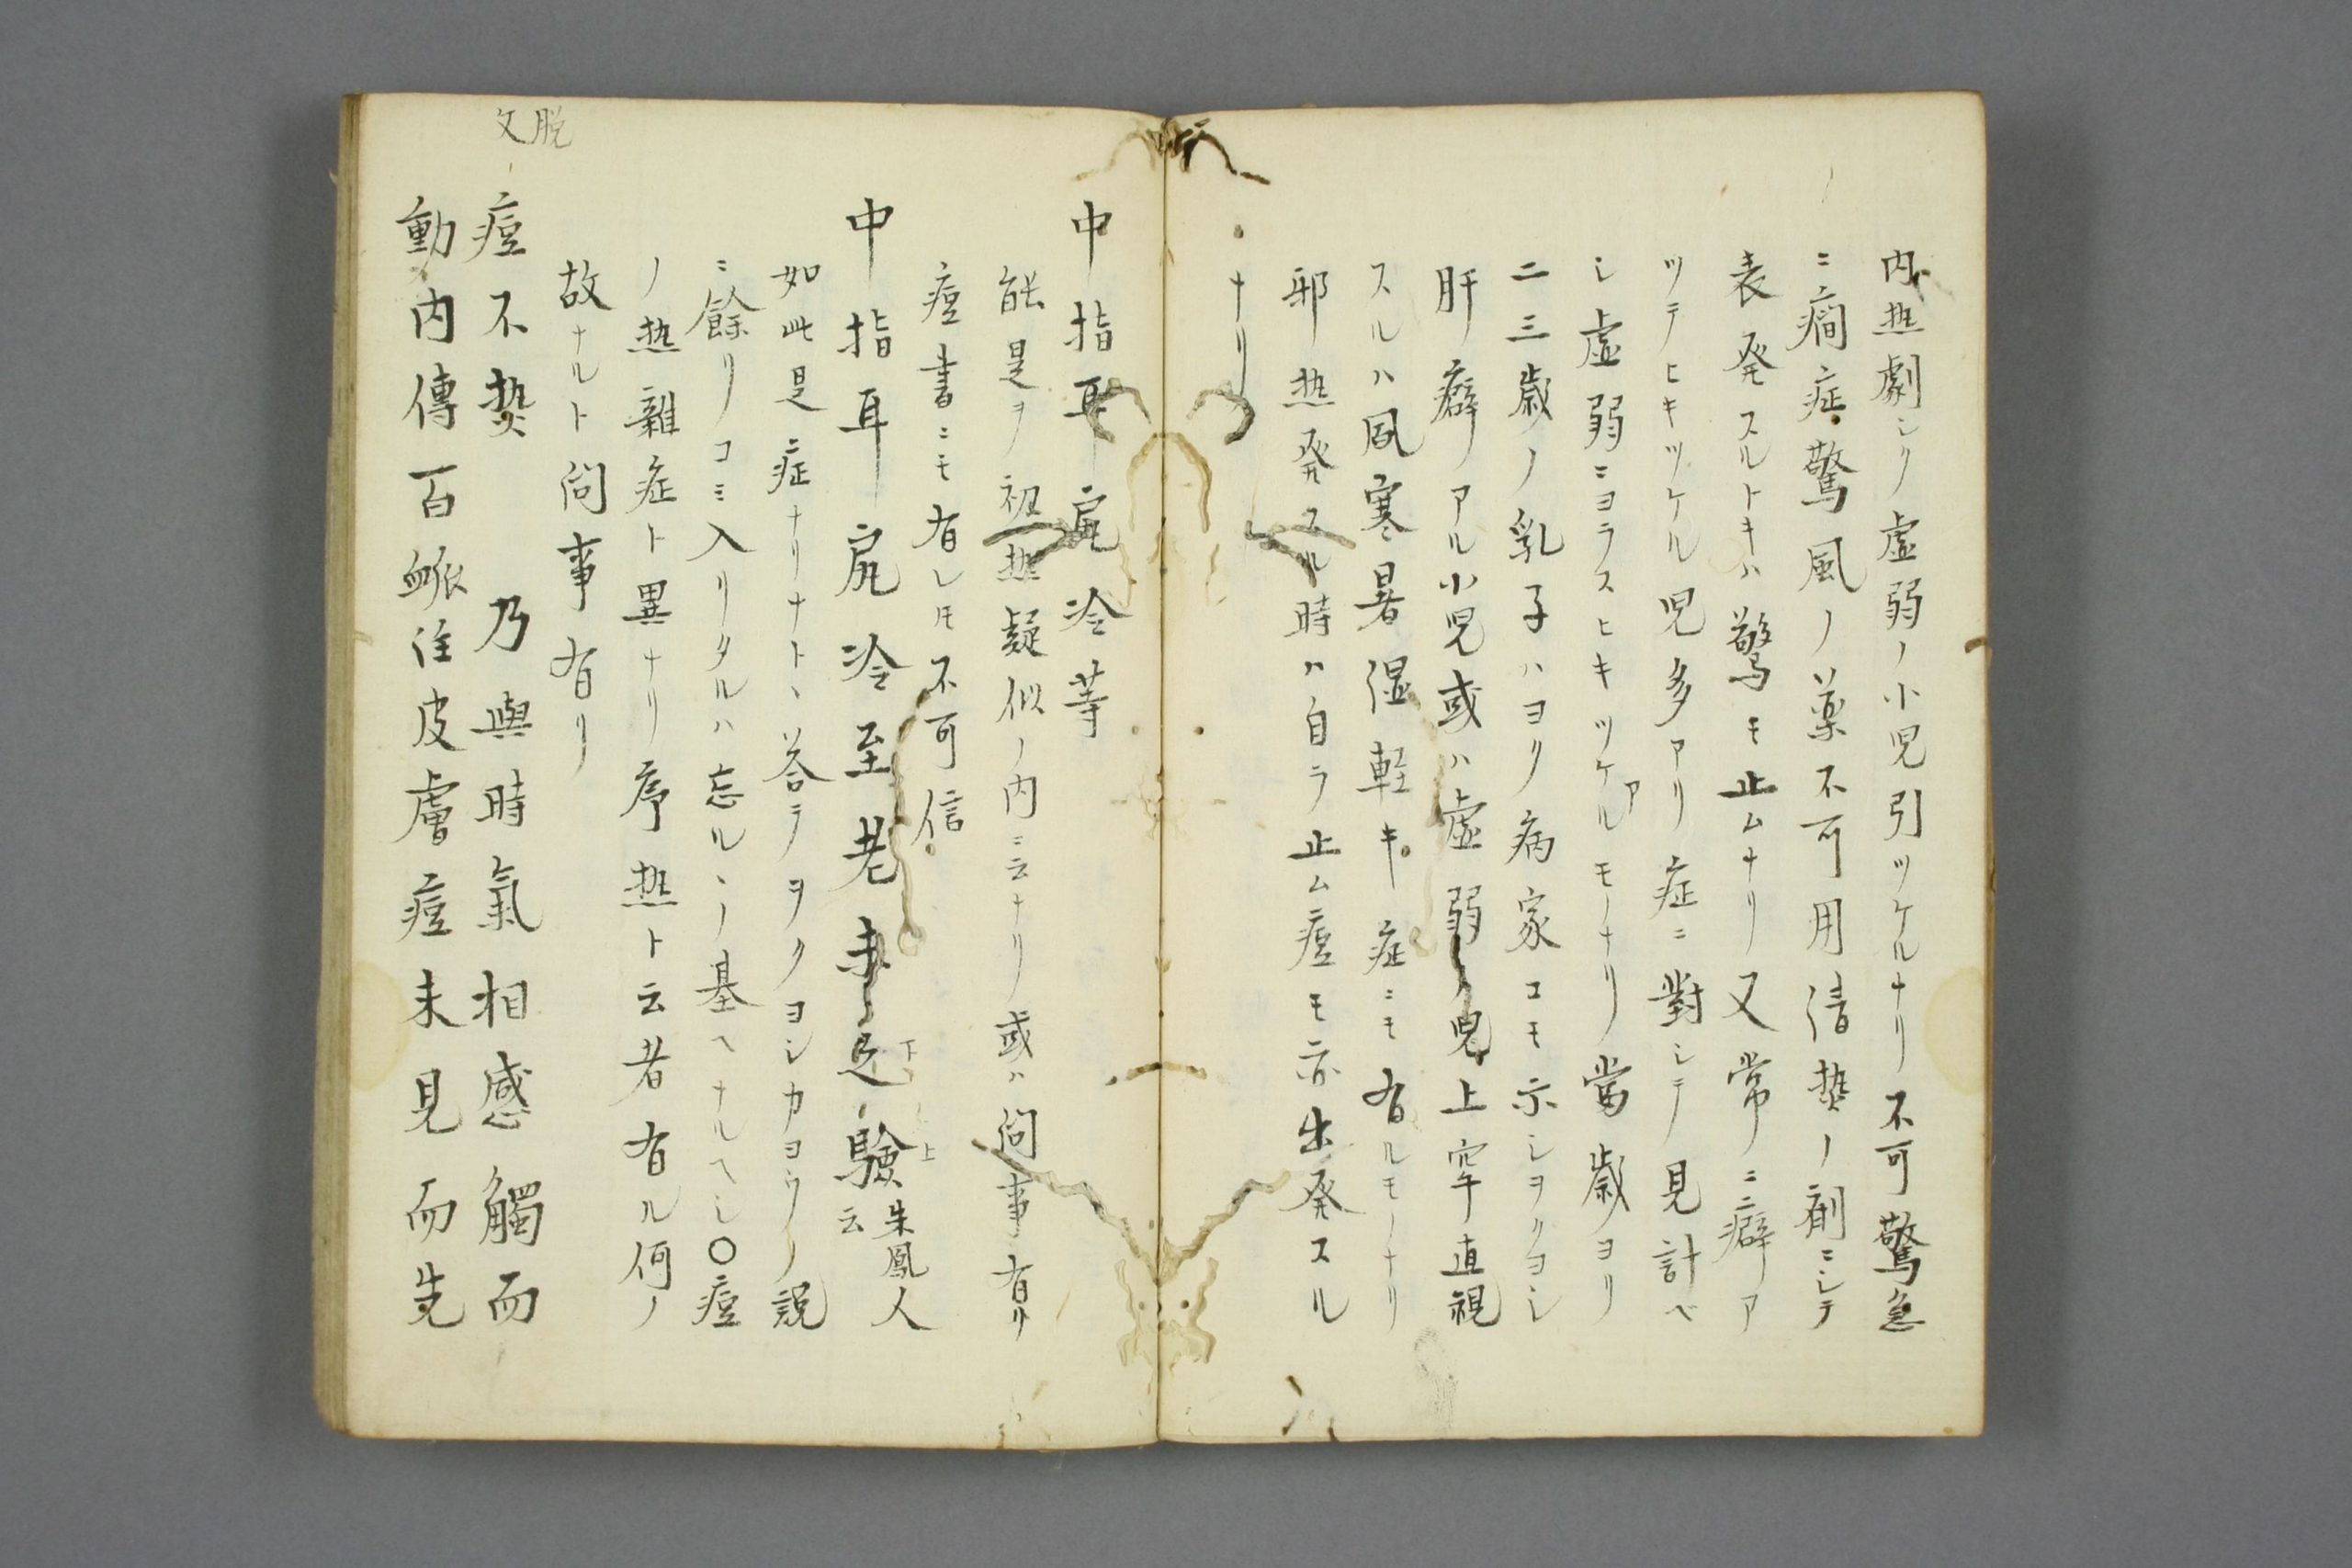 内热劇シク虚弱ノ小児引ツケルナリ不可驚急
ニ癇症驚風ノ薬不可用清熱ノ剤ニシテ
表発スルトキハ驚モ止ムナリ又常ニ癖ア
ツテヒキツケル児多アリ症ニ對シテ見計ベ
シ虚弱ニヨラスヒキツケルモノナリ當歳ヨリ
ア
二三歳ノ乳子ハヨク病家エモ示シヲクヨシ
肝癖アル小児或ハ虚弱ノ児上牢直視
スルハ風寒暑湿軽キ症ニモ有ルモノナリ
邪热発スル時ハ自ラ止ム痘モ亦出発スル
ナリ
中指耳尻冷等
能是ヲ初热疑似ノ内ニ云ナリ或ハ問事有リ
痘書ニモ有レ𪜈不可信
中指耳尻冷至老未足驗朱鳳人云
下
上
如此是症ナリナト、答ヲヲクヨシカヨウノ説
ニ餘リコミ入リタルハ忘ルヽノ基ヘナルヘシ〇痘
ノ热雜症ト異ナリ序热ト云者有ル何ノ
故ナルト問事有リ
脱文
痘不热 乃與時氣相感觸而
動内傳百脈往皮膚痘未見而先